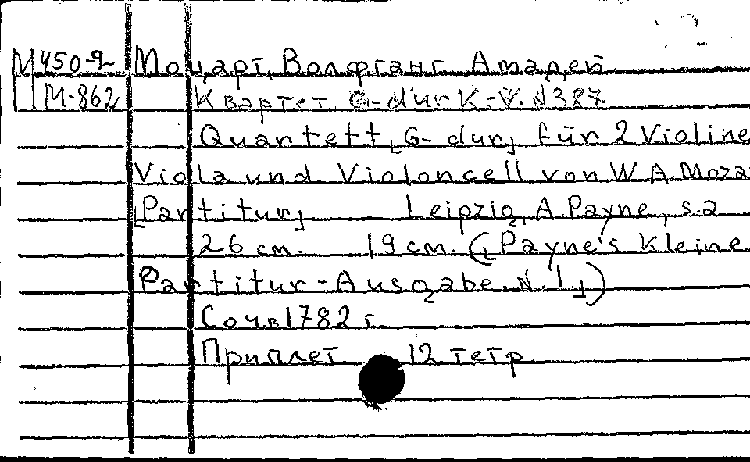 М450-9 Моцарт, Волфганг Амадей
М-862 Квартет G-dur K.-V. N387
Quartett, G-dur, für 2 Violine
Viola und Violoncell von W A Mozar
[Partitur] Leipzig, A Payne, s.a
26 cm. 19 cm. ([Payne's Kleine
Partitur-Ausgabe. N. 1])
Соч. 1782 г.
Приплет 12 тетр